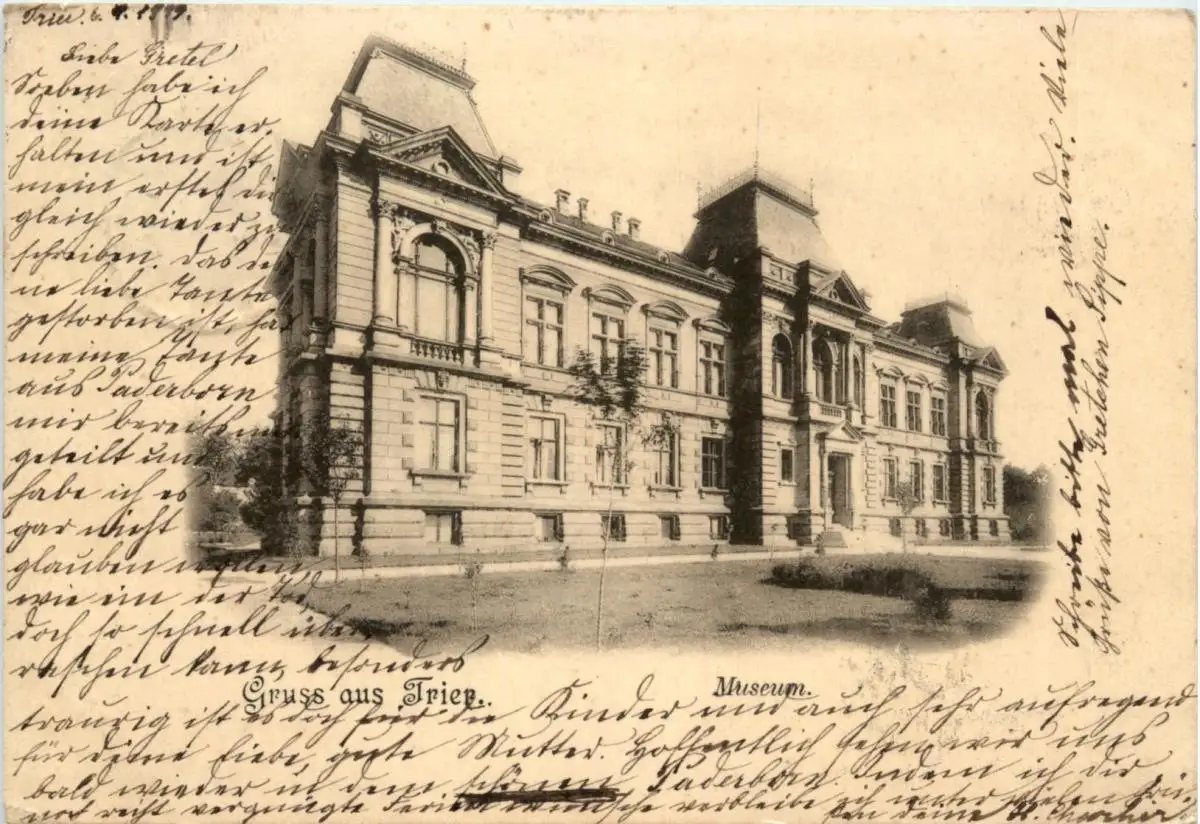 Trier. 6. 4. 1
Liebe Gretel
Soeben habe ich
deine Karte er-
halten und ist
mein erstes dir
gleich wieder zu
schreiben. Das dei
ne liebe Tante
gestorben ist, ha
meine Tante
aus Paderborn
mir bereits
geteilt und
habe ich es
gar nicht
glauben wollen
wie ein der Tod
doch so schnell über
raschen kann, besonders
Gruss aus Trier.
Museum.
traurig ist es doch für die Kinder und auch sehr aufregend
für deine liebe, gute Mutter. Hoffentlich sehn wir uns
bald wieder in dem schönen Paderborn. Indem ich dir
noch recht vergnügte Ferien wünsche verbleibe ich unter vielen Grü-
ßen deine K.
Schreibe bitte mal wieder. Viele
Grüße von Gretchen Pippe.